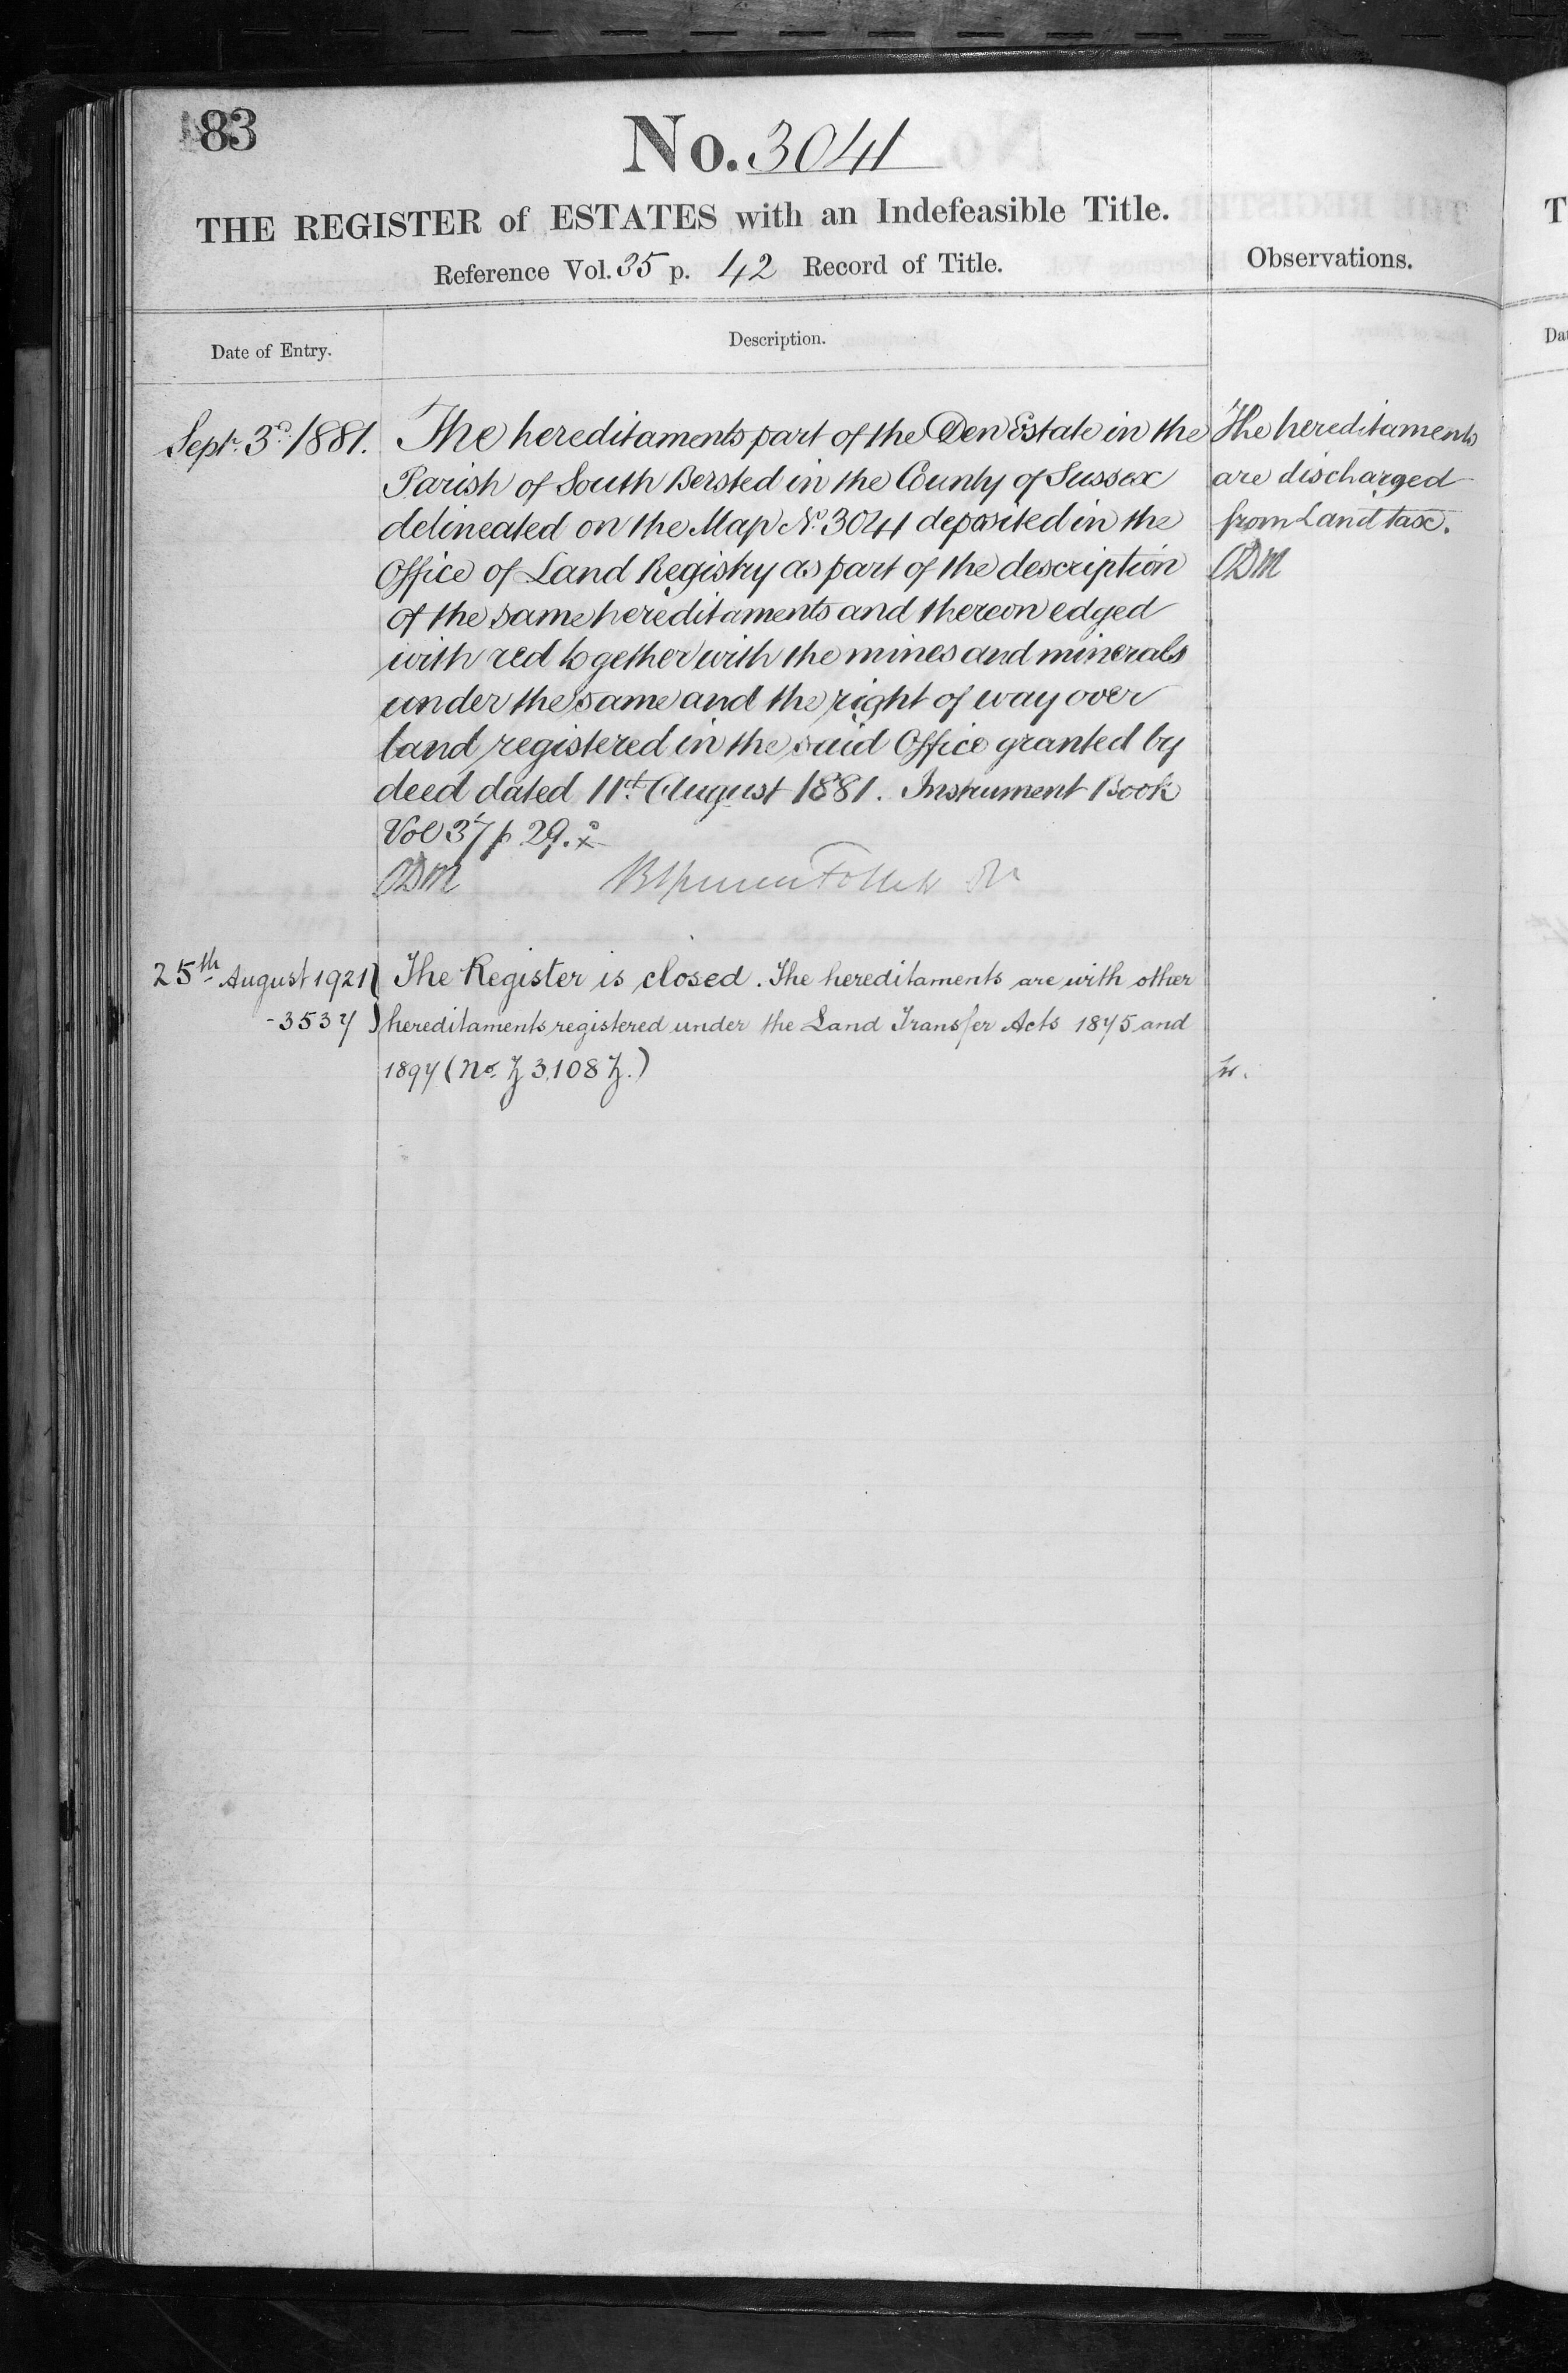 83
No. 3041
THE REGISTER of ESTATES with an Indefeasible Title.
Reference Vol. 35 p. 42 Record of Title.
Observations.
Date of Entry.
Description.
Sept. 3d. 1881.
The hereditaments part of the Den Estate in the
Parish of South Bersted in the County of Sussex
delineated on the Map No. 3041 deposited in the
Office of Land Registry as part of the description
of the same hereditaments and thereon edged
with red together with the mines and minerals
under the same and the right of way over
land registered in the said Office granted by
deed dated 11th August 1881. Instrument Book
Vol 37 p. 29.
ODM
The hereditaments
are discharged
from Land tax.
ODM
25th August 1921
-3537
The Register is closed. The hereditaments are with other
hereditaments registered under the Land Transfer Acts 1875 and
1897 (No. Z 3108 Z.)